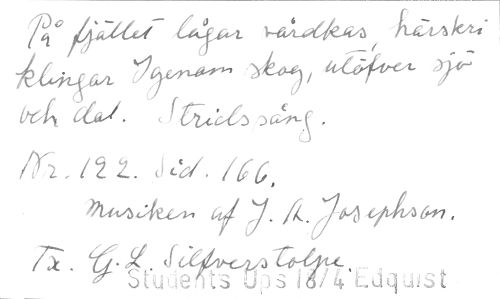 På fjället lågar vårdkas, härskri
klingar Igenom skog, utöfver sjö
och dal. Stridssång.
Nr. 122. Sid. 166.
Musiken af J. A. Josephson.
Tx. G. L. Silfverstolpe.
Students Ups 18/4 Edquist